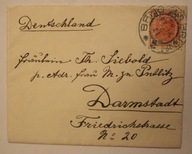 Deutschland
Fräulein Th. Siebold
p. Adr. Frau M. zu Putlitz
Darmstadt
Friedrichstrasse
No 20